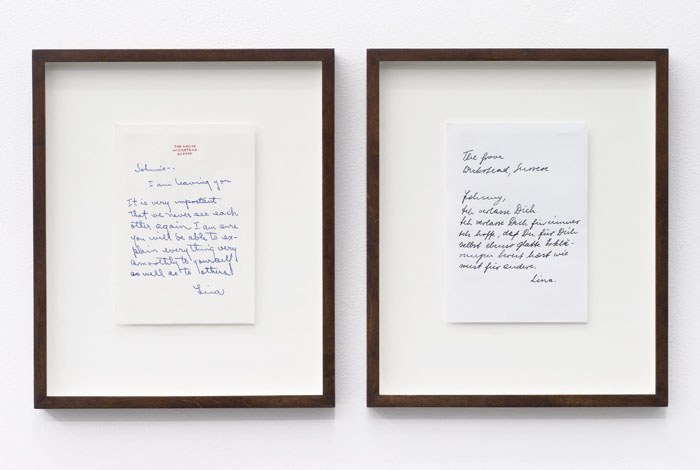 THE GROVE
WICKSTEAD
SUSSEX
Johnnie--
I am leaving you
It is very important
that we never see each
other again I am sure
you will be able to ex-
plain everything very
smoothly to yourself
as well as to others
Lina
The Grove
Wickstead, Sussex
Johnny,
Ich verlasse Dich
Ich verlasse Dich für immer
Ich hoffe, daß Du für Dich
selbst ebenso glatte Erklä-
rungen bereit hast wie
sonst für andere.
Lina.